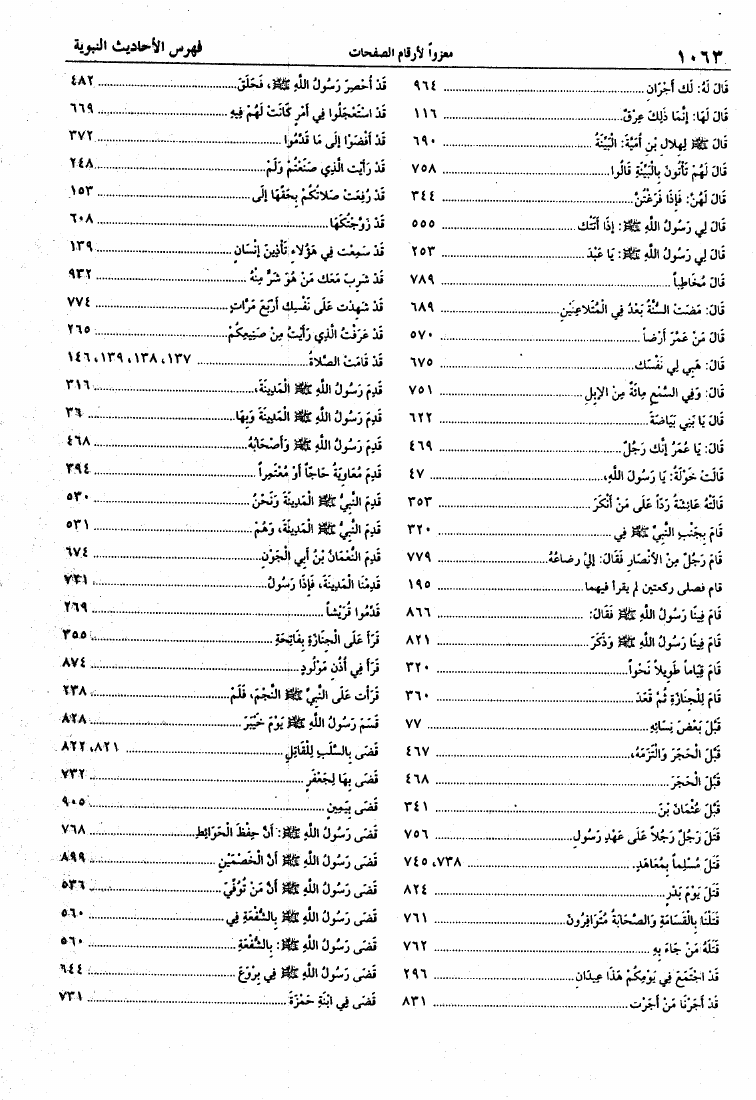 ١٠٦٣ معزواً لأرقام الصفحات فهرس الأحاديث النبوية
قَالَ لَهُ: لَك أَجْرَانِ ٩٦٤
قَالَ لَهَا: إِنَّمَا ذَلِكَ عِرْقٌ ١١٦
قَالَ ﷺ لِهِلالِ بْنِ أُمَيَّةَ: الْبَيِّنَةُ ٦٩٠
قَالَ لَهُمْ تَأْتُونَ بِالْبَيِّنَةِ قَالُوا ٧٥٨
قَالَ لَهُنَّ: فَإِذَا فَرَغْتُنَّ ٣٤٤
قَالَ لِي رَسُولُ اللَّهِ ﷺ: إِذَا أَتَتْك ٥٥٥
قَالَ لِي رَسُولُ اللَّهِ ﷺ: يَا عَبْدَ ٢٥٣
قَالَ مُخَاطِباً ٧٨٩
قَالَ: مَضَتِ السُّنَّةُ بَعْدُ فِي الْمُتَلاعِنَيْنِ ٦٨٩
قَالَ مَنْ عَمَرَ أَرْضاً ٥٧٠
قَالَ: هَبِي لِي نَفْسَك ٦٧٥
قَالَ: وَفِي السَّمْعِ مِائَةٌ مِنَ الإِبِلِ ٧٥١
قَالَ يَا بَنِي بَيَاضَةَ ٦٢٢
قَالَ: يَا عُمَرُ إِنَّك رَجُلٌ ٤٦٩
قَالَتْ خَوْلَةُ: يَا رَسُولَ اللَّهِ، ٤٧
قَالَتْهُ عَائِشَةُ رَدّاً عَلَى مَنْ أَنْكَرَ ٣٥٣
قَامَ بِجَنْبِ النَّبِيِّ ﷺ فِي ٣٢٠
قَامَ رَجُلٌ مِنَ الأَنْصَارِ فَقَالَ: إِلَيَّ رضاعُهُ ٧٧٩
قام فصلى ركعتين لم يقرأ فيهما ١٩٥
قَامَ فِينَا رَسُولُ اللَّهِ ﷺ فَقَالَ: ٨٦٦
قَامَ فِينَا رَسُولُ اللَّهِ ﷺ وَذَكَرَ ٨٢١
قَامَ قِيَاماً طَوِيلاً نَحْواً ٣٢٠
قَامَ لِلْجَنَازَةِ ثُمَّ قَعَدَ ٣٦٠
قَبَّلَ بَعْضَ نِسَائِهِ ٧٧
قَبَّلَ الْحَجَرَ وَالْتَزَمَهُ، ٤٦٧
قَبَّلَ الْحَجَرَ ٤٦٨
قَبَّلَ عُثْمَانَ بْنَ ٣٤١
قَتَلَ رَجُلٌ رَجُلاً عَلَى عَهْدِ رَسُولِ ٧٥٦
قَتَلَ مُسْلِماً بِمُعَاهَدٍ ٧٣٨، ٧٤٥
قَتَلَ يَوْمَ بَدْرٍ ٨٢٤
قَتَلْنَا بِالْقَسَامَةِ وَالصَّحَابَةُ مُتَوَافِرُونَ ٧٦١
قَتَلَهُ مَنْ جَاءَ بِهِ ٧٦٢
قَدْ اجْتَمَعَ فِي يَوْمِكُمْ هَذَا عِيدَانِ ٢٩٦
قَدْ أَجَرْنَا مَنْ أَجَرْت ٨٣١
قَدْ أُحْصِرَ رَسُولُ اللَّهِ ﷺ، فَحَلَقَ ٤٨٢
قَدْ اسْتَعْجَلُوا فِي أَمْرٍ كَانَتْ لَهُمْ فِيهِ ٦٦٩
قَدْ أَفْضَوْا إِلَى مَا قَدَّمُوا ٣٧٢
قَدْ رَأَيْت الَّذِي صَنَعْتُمْ وَلَمْ ٢٤٨
قَدْ رُفِعَتْ صَلاتُكُمْ بِحَقِّهَا إِلَى ١٥٣
قَدْ زَوَّجْتُكَهَا ٦٠٨
قَدْ سَمِعْت فِي هَؤُلاءِ تَأْذِينَ إِنْسَانٍ ١٣٩
قَدْ شَرِبَ مَعَك مَنْ هُوَ شَرٌّ مِنْهُ ٩٣٢
قَدْ شَهِدْت عَلَى نَفْسِك أَرْبَعَ مَرَّاتٍ ٧٧٤
قَدْ عَرَفْتُ الَّذِي رَأَيْتُ مِنْ صَنِيعِكُمْ ٢٦٥
قَدْ قَامَتِ الصَّلاةُ ١٣٧، ١٣٨، ١٣٩، ١٤٦
قَدِمَ رَسُولُ اللَّهِ ﷺ الْمَدِينَةَ، ٣١٦
قَدِمَ رَسُولُ اللَّهِ ﷺ الْمَدِينَةَ وَبِهَا ٣٦
قَدِمَ رَسُولُ اللَّهِ ﷺ وَأَصْحَابُهُ ٤٦٨
قَدِمَ مُعَاوِيَةُ حَاجّاً أَوْ مُعْتَمِراً ٣٩٤
قَدِمَ النَّبِيُّ ﷺ الْمَدِينَةَ وَنَحْنُ ٥٣٠
قَدِمَ النَّبِيُّ ﷺ الْمَدِينَةَ، وَهُمْ ٥٣١
قَدِمَ النُّعْمَانُ بْنُ أَبِي الْجَوْنِ ٦٧٤
قَدِمْنَا الْمَدِينَةَ، فَإِذَا رَسُولُ ٧٣١
قَدِّمُوا قُرَيْشاً ٢٦٩
قَرَأَ عَلَى الْجَنَازَةِ بِفَاتِحَةِ ٣٥٥
قَرَأَ فِي أُذُنِ مَوْلُودٍ ٨٧٤
قَرَأْت عَلَى النَّبِيِّ ﷺ النَّجْمَ، فَلَمْ ٢٣٨
قَسَمَ رَسُولُ اللَّهِ ﷺ يَوْمَ خَيْبَرَ ٨٢٨
قَضَى بِالسَّلَبِ لِلْقَاتِلِ ٨٢١، ٨٢٢
قَضَى بِهَا لِجَعْفَرٍ ٧٣٢
قَضَى بِيَمِينٍ ٩٠٥
قَضَى رَسُولُ اللَّهِ ﷺ: أَنَّ حِفْظَ الْحَوَائِطِ ٧٦٨
قَضَى رَسُولُ اللَّهِ ﷺ أَنَّ الْخَصْمَيْنِ ٨٩٩
قَضَى رَسُولُ اللَّهِ ﷺ أَنَّ مَنْ تُوُفِّيَ ٥٣٦
قَضَى رَسُولُ اللَّهِ ﷺ بِالشُّفْعَةِ فِي ٥٦٠
قَضَى رَسُولُ اللَّهِ ﷺ: بِالشُّفْعَةِ ٥٦٠
قَضَى رَسُولُ اللَّهِ ﷺ فِي بِرْوَعَ ٦٤٤
قَضَى فِي ابْنَةِ حَمْزَةَ ٧٣١